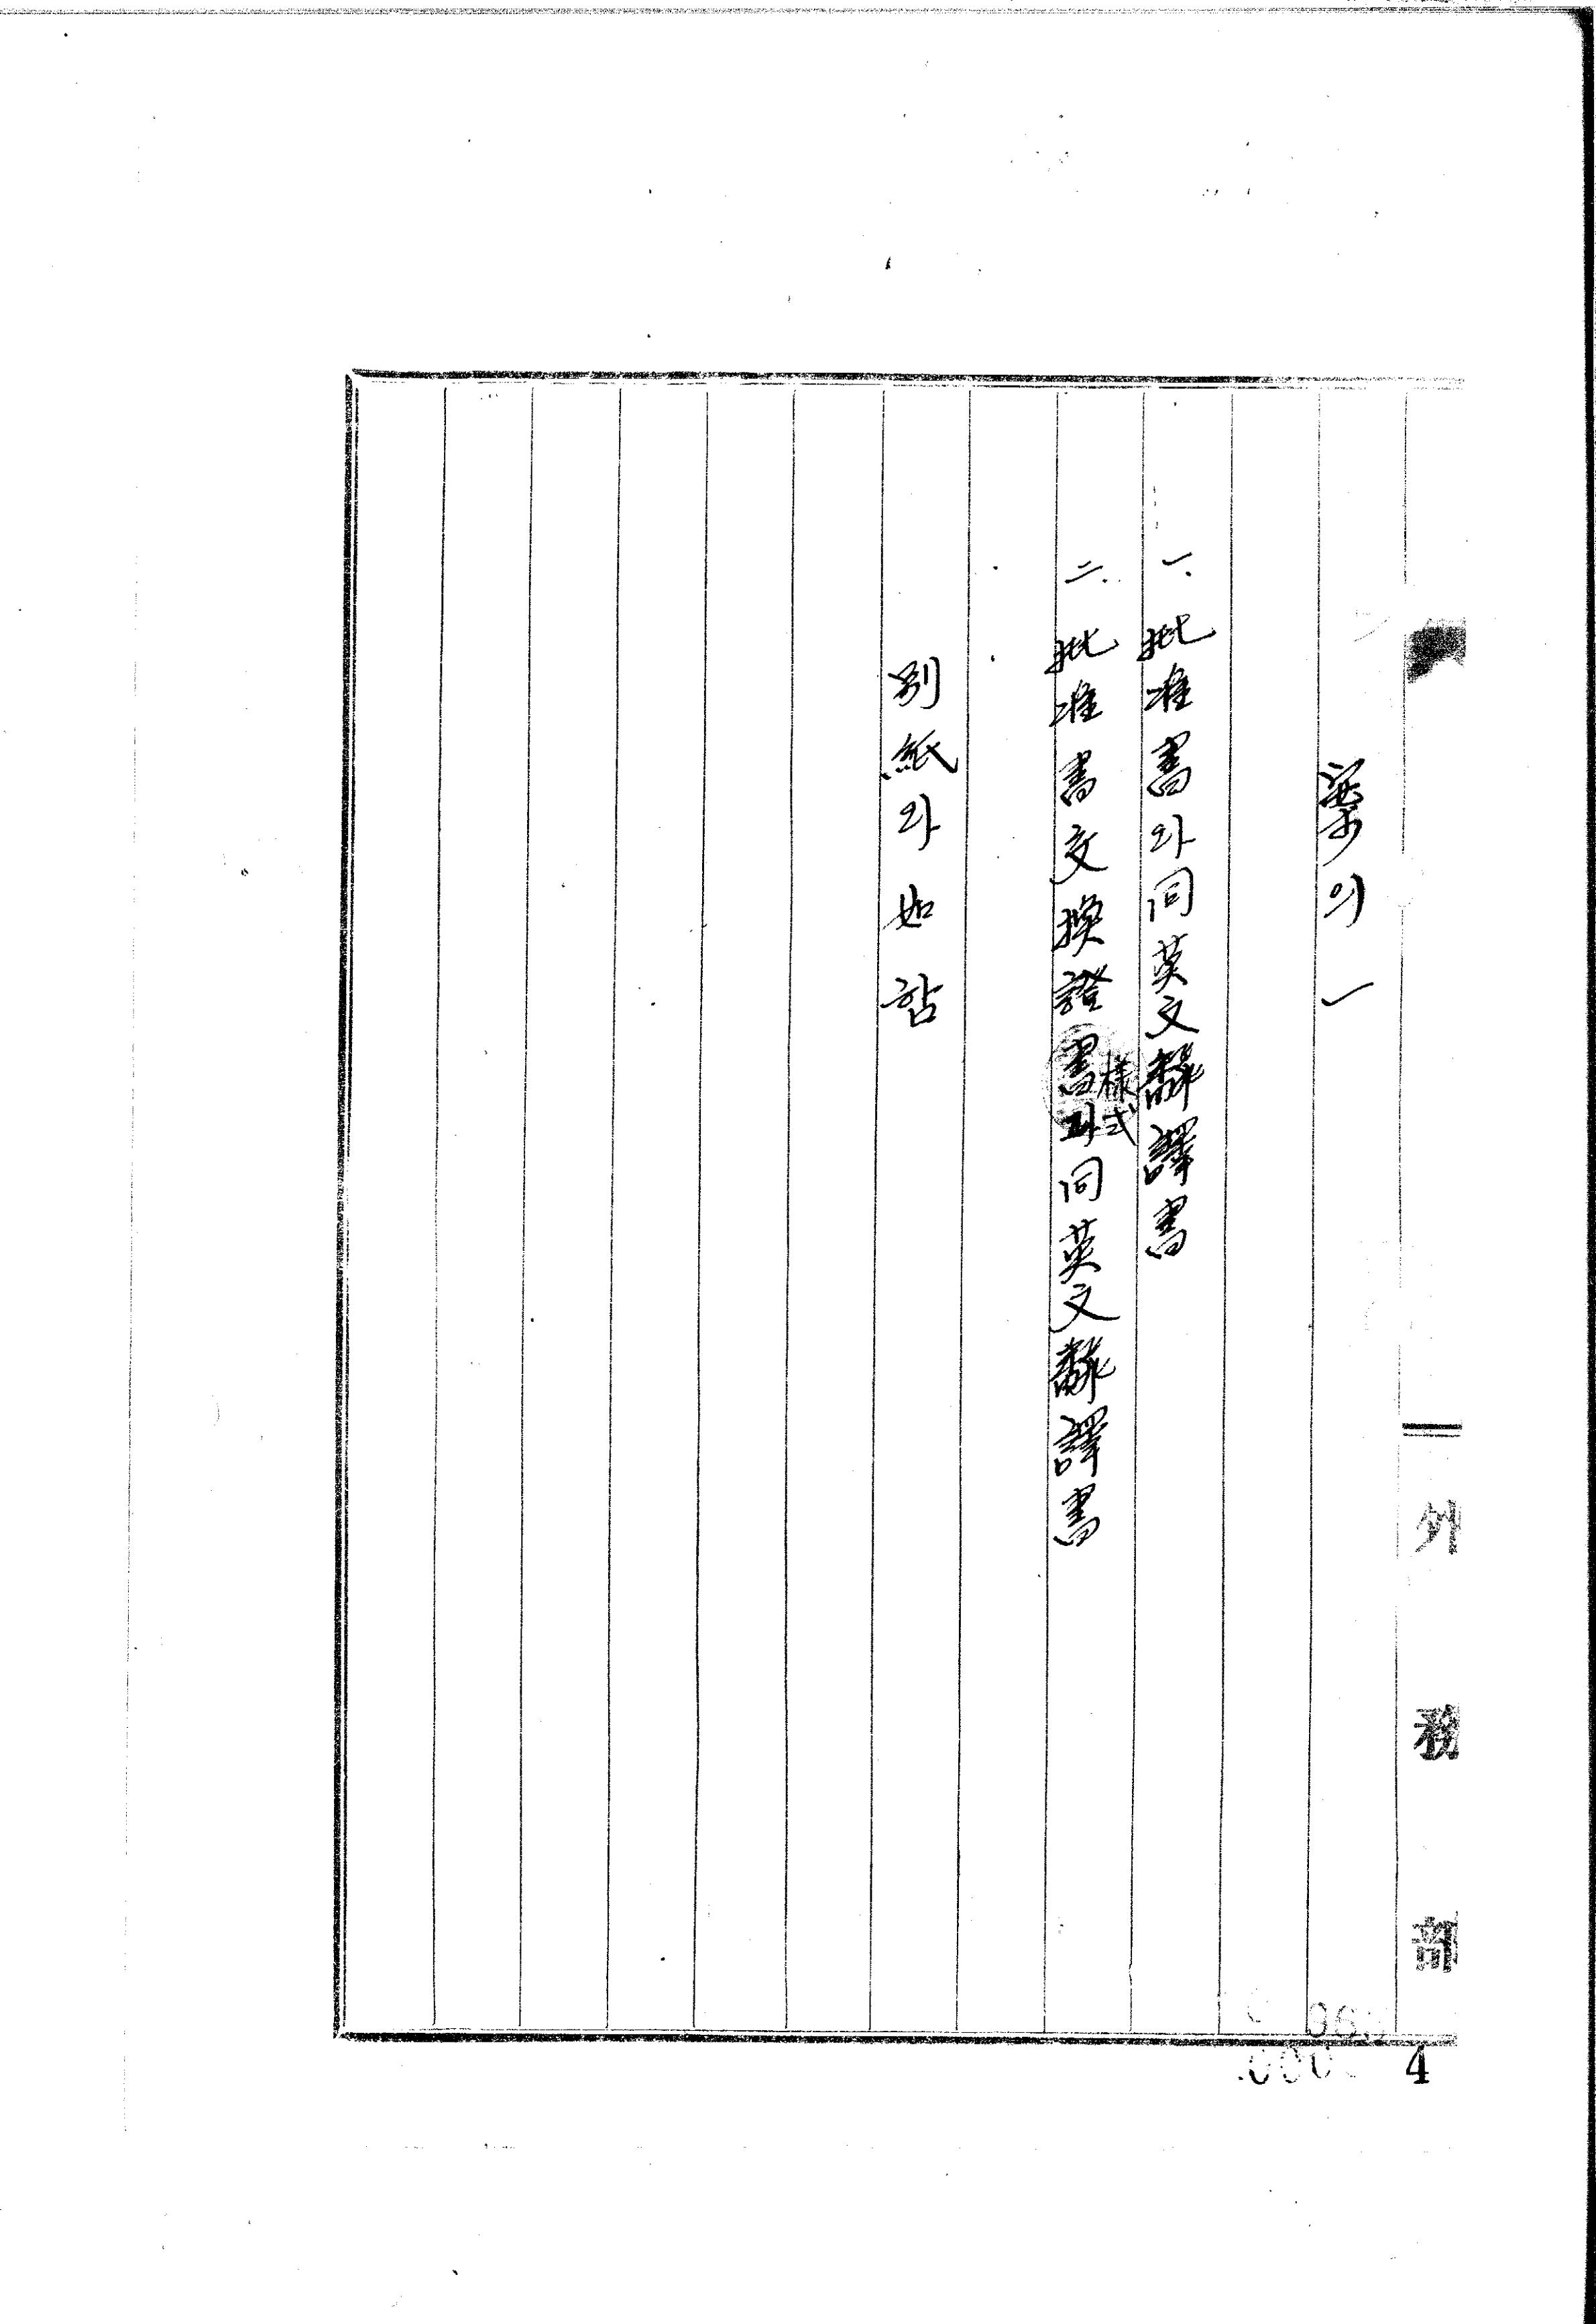 案의 一
一. 批准書와 同英文飜譯書
二. 批准書交換證書樣式과 同英文飜譯書
別紙와 如함
外務部
4